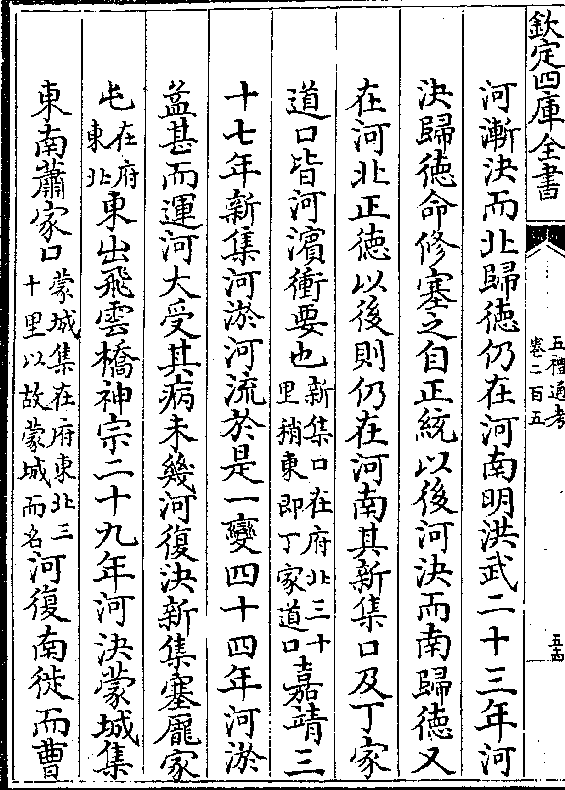 欽定四庫全書
五禮通考
卷二百五
五十四
河漸決而北歸徳仍在河南明洪武二十三年河
決歸徳命修塞之自正統以後河決而南歸徳又
在河北正徳以後則仍在河南其新集口及丁家
道口皆河濱衝要也新集口在府北三十里稍東即丁家道口嘉靖三
十七年新集河淤河流於是一變四十四年河淤
益甚而運河大受其病未幾河復決新集塞龐家
屯在府東北東出飛雲橋神宗二十九年河決蒙城集
東南蕭家口蒙城集在府東北三十里以故蒙城而名河復南徙而曹